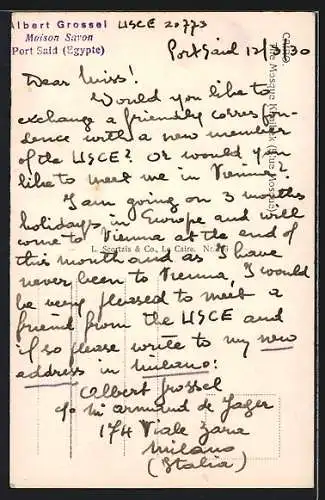 Albert Grossel USCE 20773
Maison Savon
Port Said (Egypte)
Port Said 12/5/30
Dear Miss!
Would you like to
exchange a friendly correspon-
dence with a new member
of the USCE? Or would you
like to meet me in Vienna?
I am going on 3 months
holidays in Europe and will
come to Vienna at the end of
this month and as I have
never been to Vienna, I would
be very pleased to meet a
friend from the USCE and
if so please write to my new
address in Milano:
Albert Grossel
c/o Mr Armand de Jager
174 Viale Zara
Milano
(Italia)
L. Scortzis & Co., Le Caire. Nr.
CAIRO.
The Mosque (Blue Mosque)